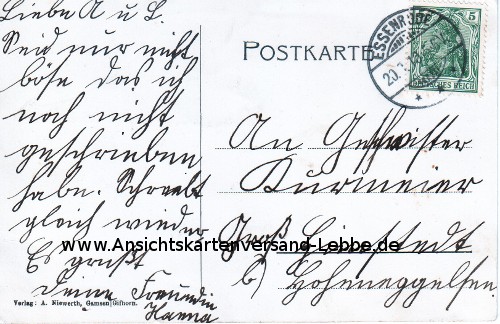 Liebe A u L.
Seid nur nicht
böse das ich
noch nicht
geschrieben
habe. Schreibt
gleich wieder
Es grüßt
deine Freundin
Hanna
Verlag: A. Niewerth, Gamsen-Gifhorn.
POSTKARTE
ESSENRODE
20.3.
5
DEUTSCHES REICH
An Geschwister
Kurmeier
Groß
b) Hoheneggelsen
www.Ansichtskartenversand-Lebbe.de